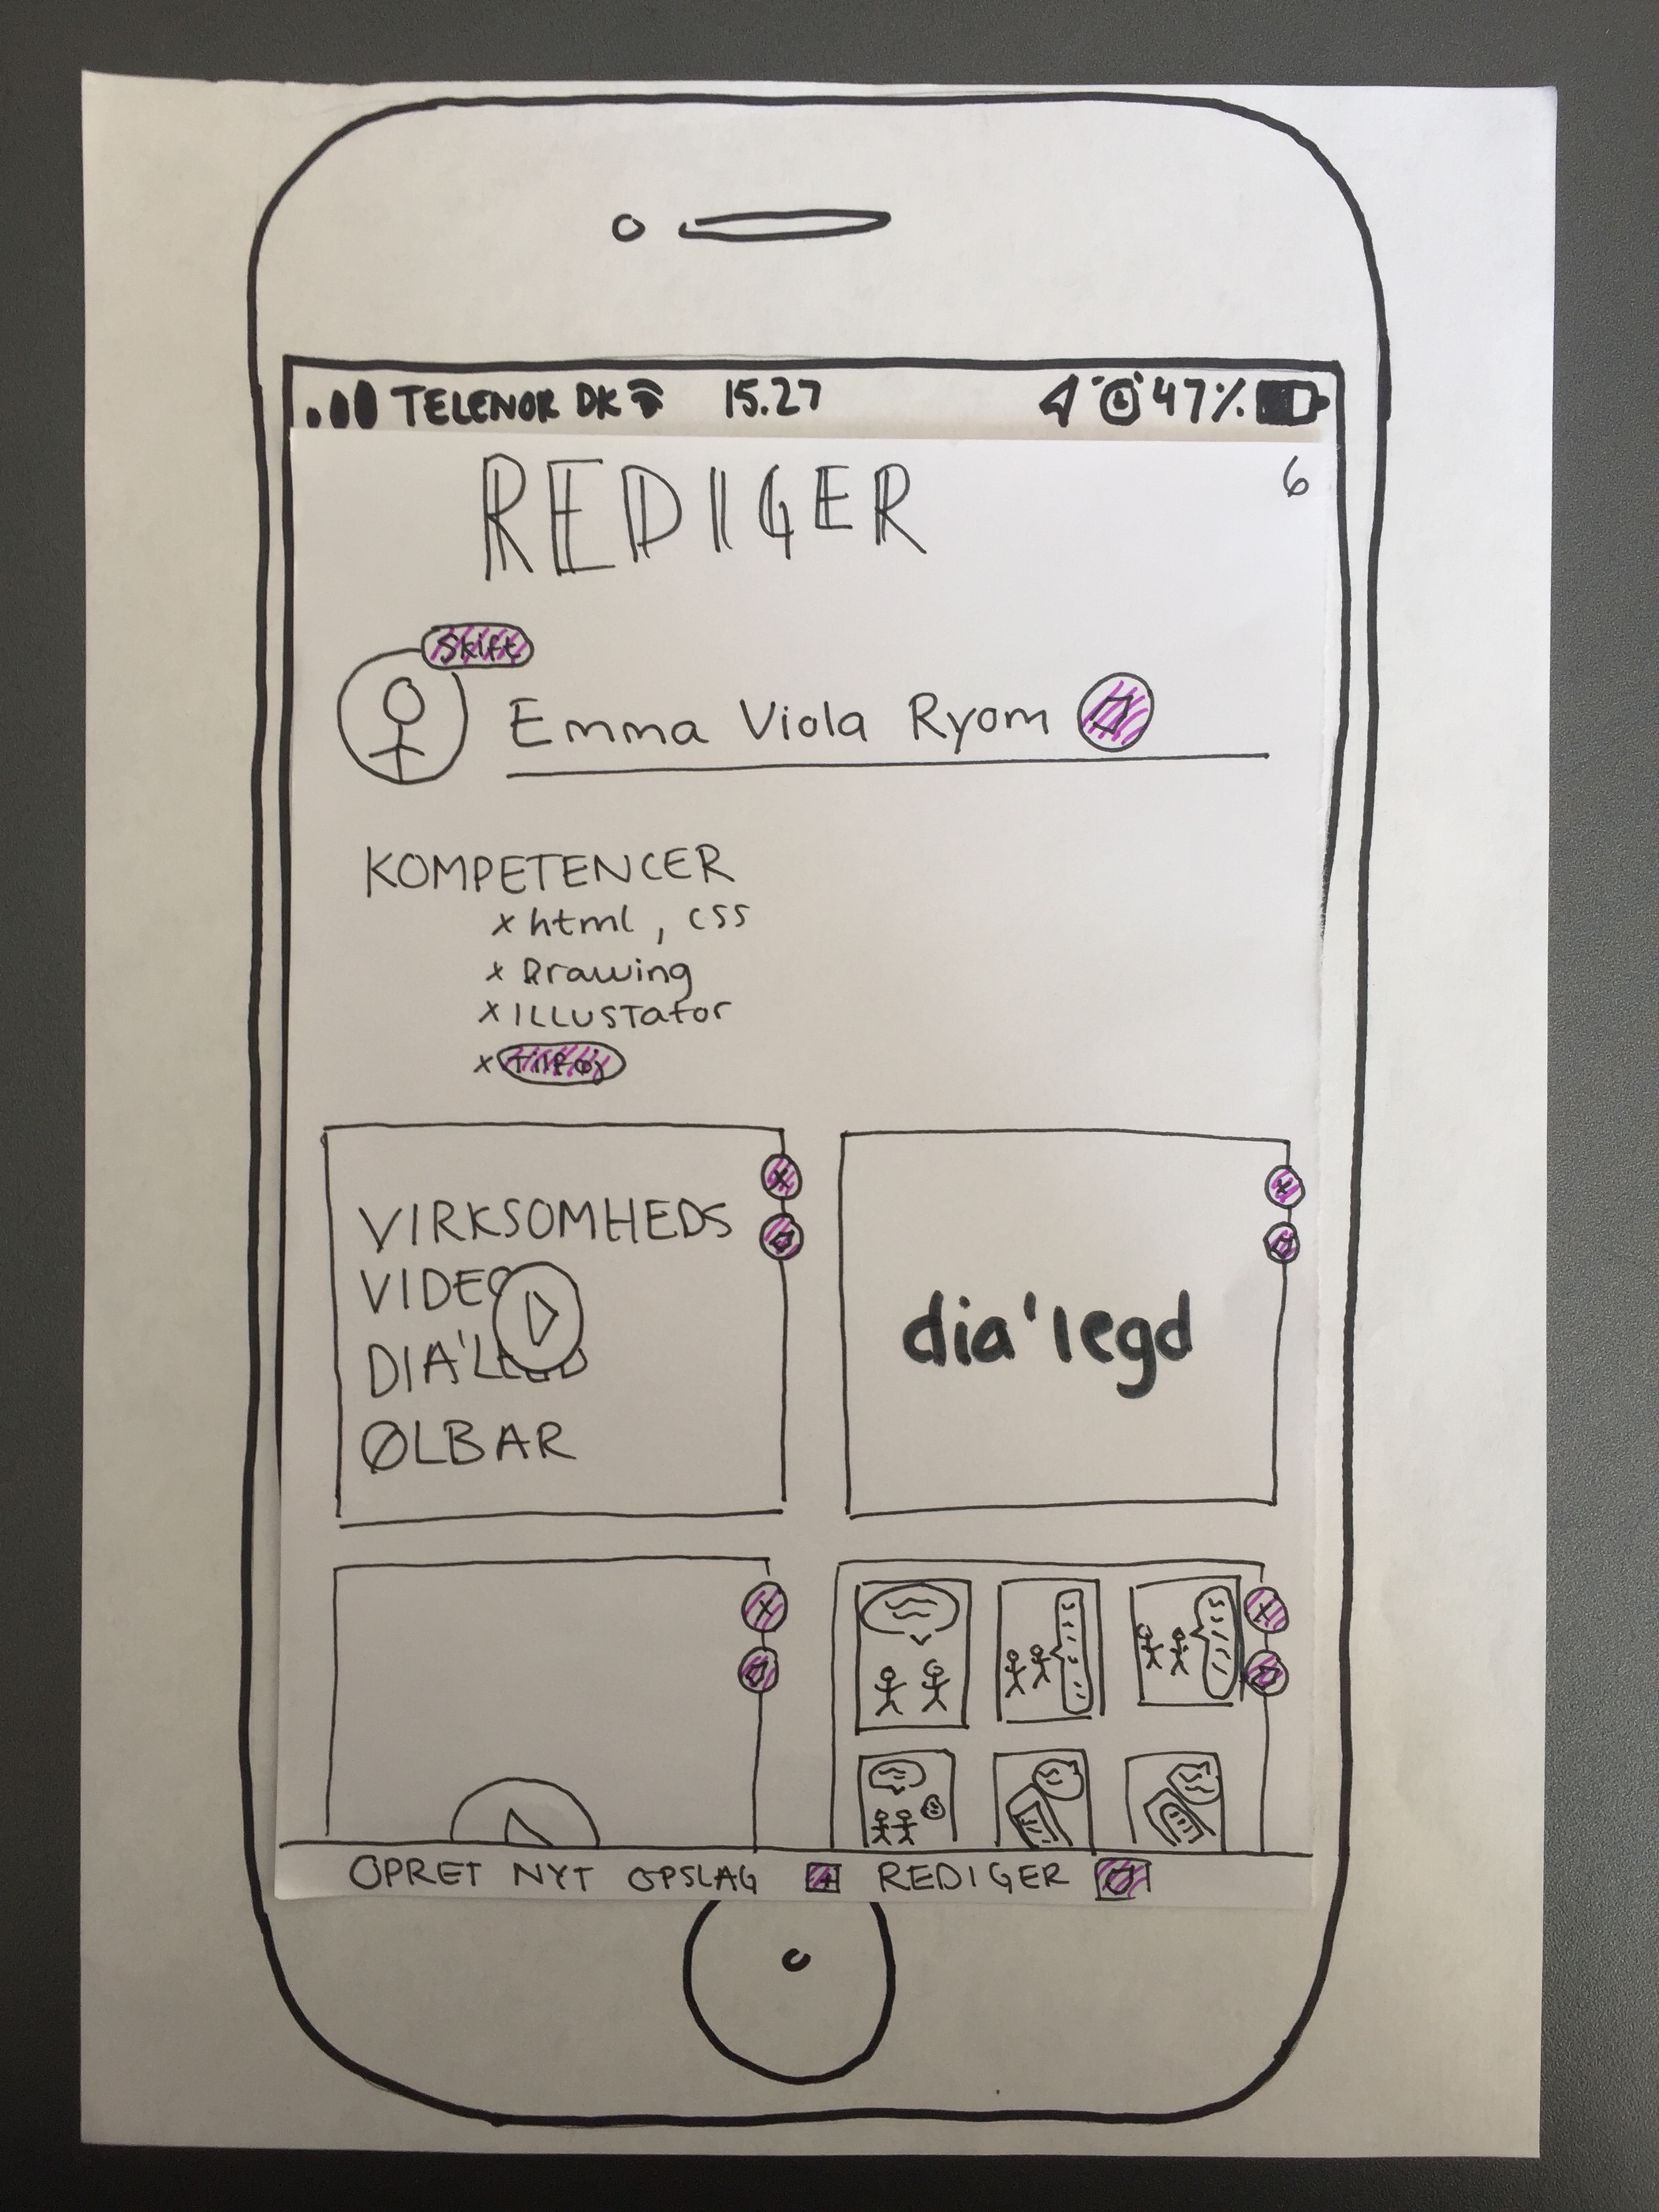 TELENOR DK 15.27 47%
6
REDIGER
Skift
Emma Viola Ryom
KOMPETENCER
x html, css
x Drawing
x ILLUSTator
x Tilføj
VIRKSOMHEDS
VIDEO
DIA'LEGD
ØLBAR
dia'legd
OPRET NYT OPSLAG + REDIGER